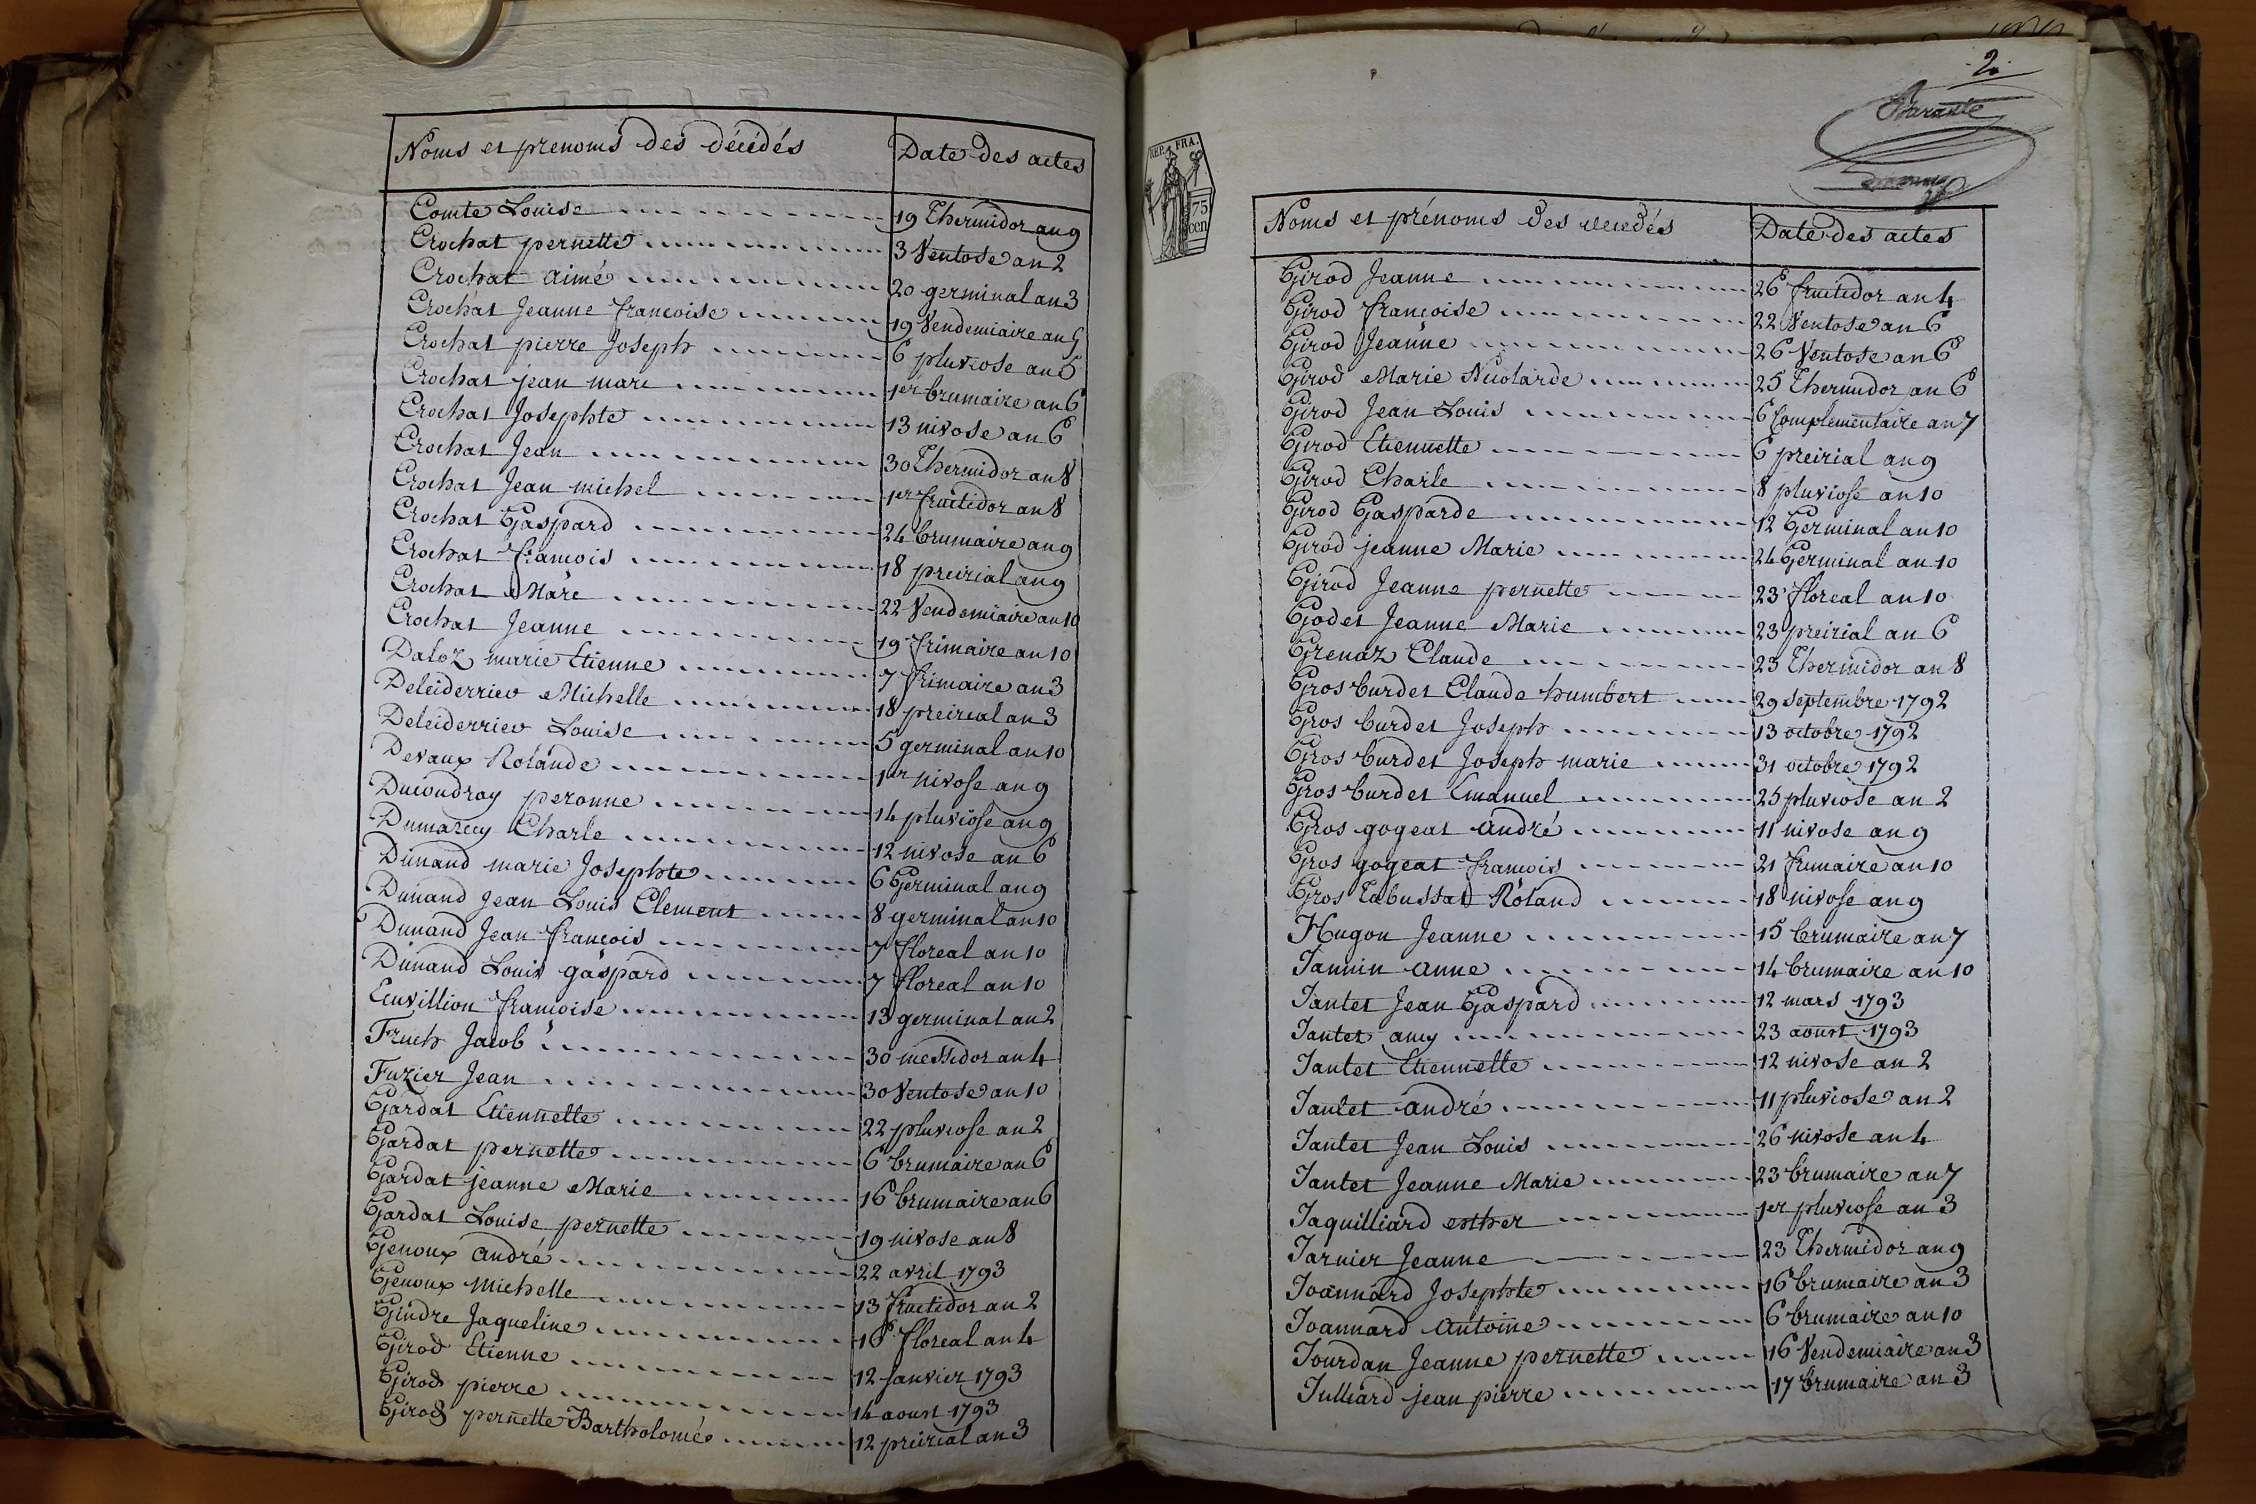 Noms et prenoms des décédés Date des actes
Comte Louise 19 Thermidor an 9
Crochat pernette 3 Ventose an 2
Crochat aimé 20 germinal an 3
Crochat Jeanne françoise 19 Vendemiaire an 5
Crochat pierre Joseph 6 pluviose an 5
Crochat jean marc 1er brumaire an 6
Crochat Josephte 13 nivose an 6
Crochat Jean 30 Thermidor an 8
Crochat Jean michel 1er fructidor an 8
Crochat Gaspard 24 brumaire an 9
Crochat francois 18 preirial an 9
Crochat Marc 22 Vendemiaire an 10
Crochat Jeanne 19 frimaire an 10
Daloz marie Etienne 7 frimaire an 3
Deleiderrier Michelle 18 preirial an 3
Deleiderrier Louise 5 germinal an 10
Devaux Rolande 1er nivose an 9
Ducoudray peronne 14 pluviose an 9
Dumarcey Charle 12 nivose an 6
Dunand marie Josephte 6 Germinal an 9
Dunand Jean Louis Clement 8 germinal an 10
Dunand Jean françois 7 floreal an 10
Dunand Louis gaspard 7 floreal an 10
Ecuvillion françoise 13 germinal an 2
Fruch Jacob 30 messidor an 4
Fuzier Jean 30 Ventose an 10
Gardat Etiennette 22 pluviose an 2
Gardat pernette 6 brumaire an 6
Gardat jeanne Marie 16 brumaire an 6
Gardat Louise pernette 19 nivose an 8
Genoux andré 22 avril 1793
Genoux Michelle 13 fructidor an 2
Gindre Jaqueline 16 floreal an 4
Girod Etienne 12 janvier 1793
Girod pierre 14 aoust 1793
Girod pernette Bartholomée 12 preirial an 3
2
Barante
REP. FRA.
75
cen
Noms et prénoms des decedés Date des actes
Girod Jeanne 26 fructidor an 4
Girod françoise 22 Ventose an 6
Girod Jeanne 26 Ventose an 6
Girod Marie Nicolarde 25 Thermidor an 6
Girod Jean Louis 6 Complementaire an 7
Girod Etiennette 6 preirial an 9
Girod Charle 8 pluviose an 10
Girod Gasparde 12 Germinal an 10
Girod jeanne Marie 24 Germinal an 10
Girod Jeanne pernette 23 floreal an 10
Godet Jeanne Marie 23 preirial an 6
Grenaz Claude 23 Thermidor an 8
Gros burdet Claude humbert 29 septembre 1792
Gros burdet Joseph 13 octobre 1792
Gros burdet Joseph marie 31 octobre 1792
Gros burdet Emanuel 25 pluviose an 2
Gros gogeat andré 11 nivose an 9
Gros gogeat francois 21 frimaire an 10
Gros Tabussat Roland 18 nivose an 9
Hugon Jeanne 15 brumaire an 7
Jannin anne 14 brumaire an 10
Jantet Jean Gaspard 12 mars 1793
Jantet amy 23 aoust 1793
Jantet Etiennette 12 nivose an 2
Jantet andré 11 pluviose an 2
Jantet Jean Louis 26 nivose an 4
Jantet Jeanne Marie 23 brumaire an 7
Jaquilliard esther 1er pluviose an 3
Jarnier Jeanne 23 Thermidor an 9
Joannard Josephte 16 brumaire an 3
Joannard Antoine 6 brumaire an 10
Jourdan Jeanne pernette 16 Vendemiaire an 3
Julliard jean pierre 17 brumaire an 3